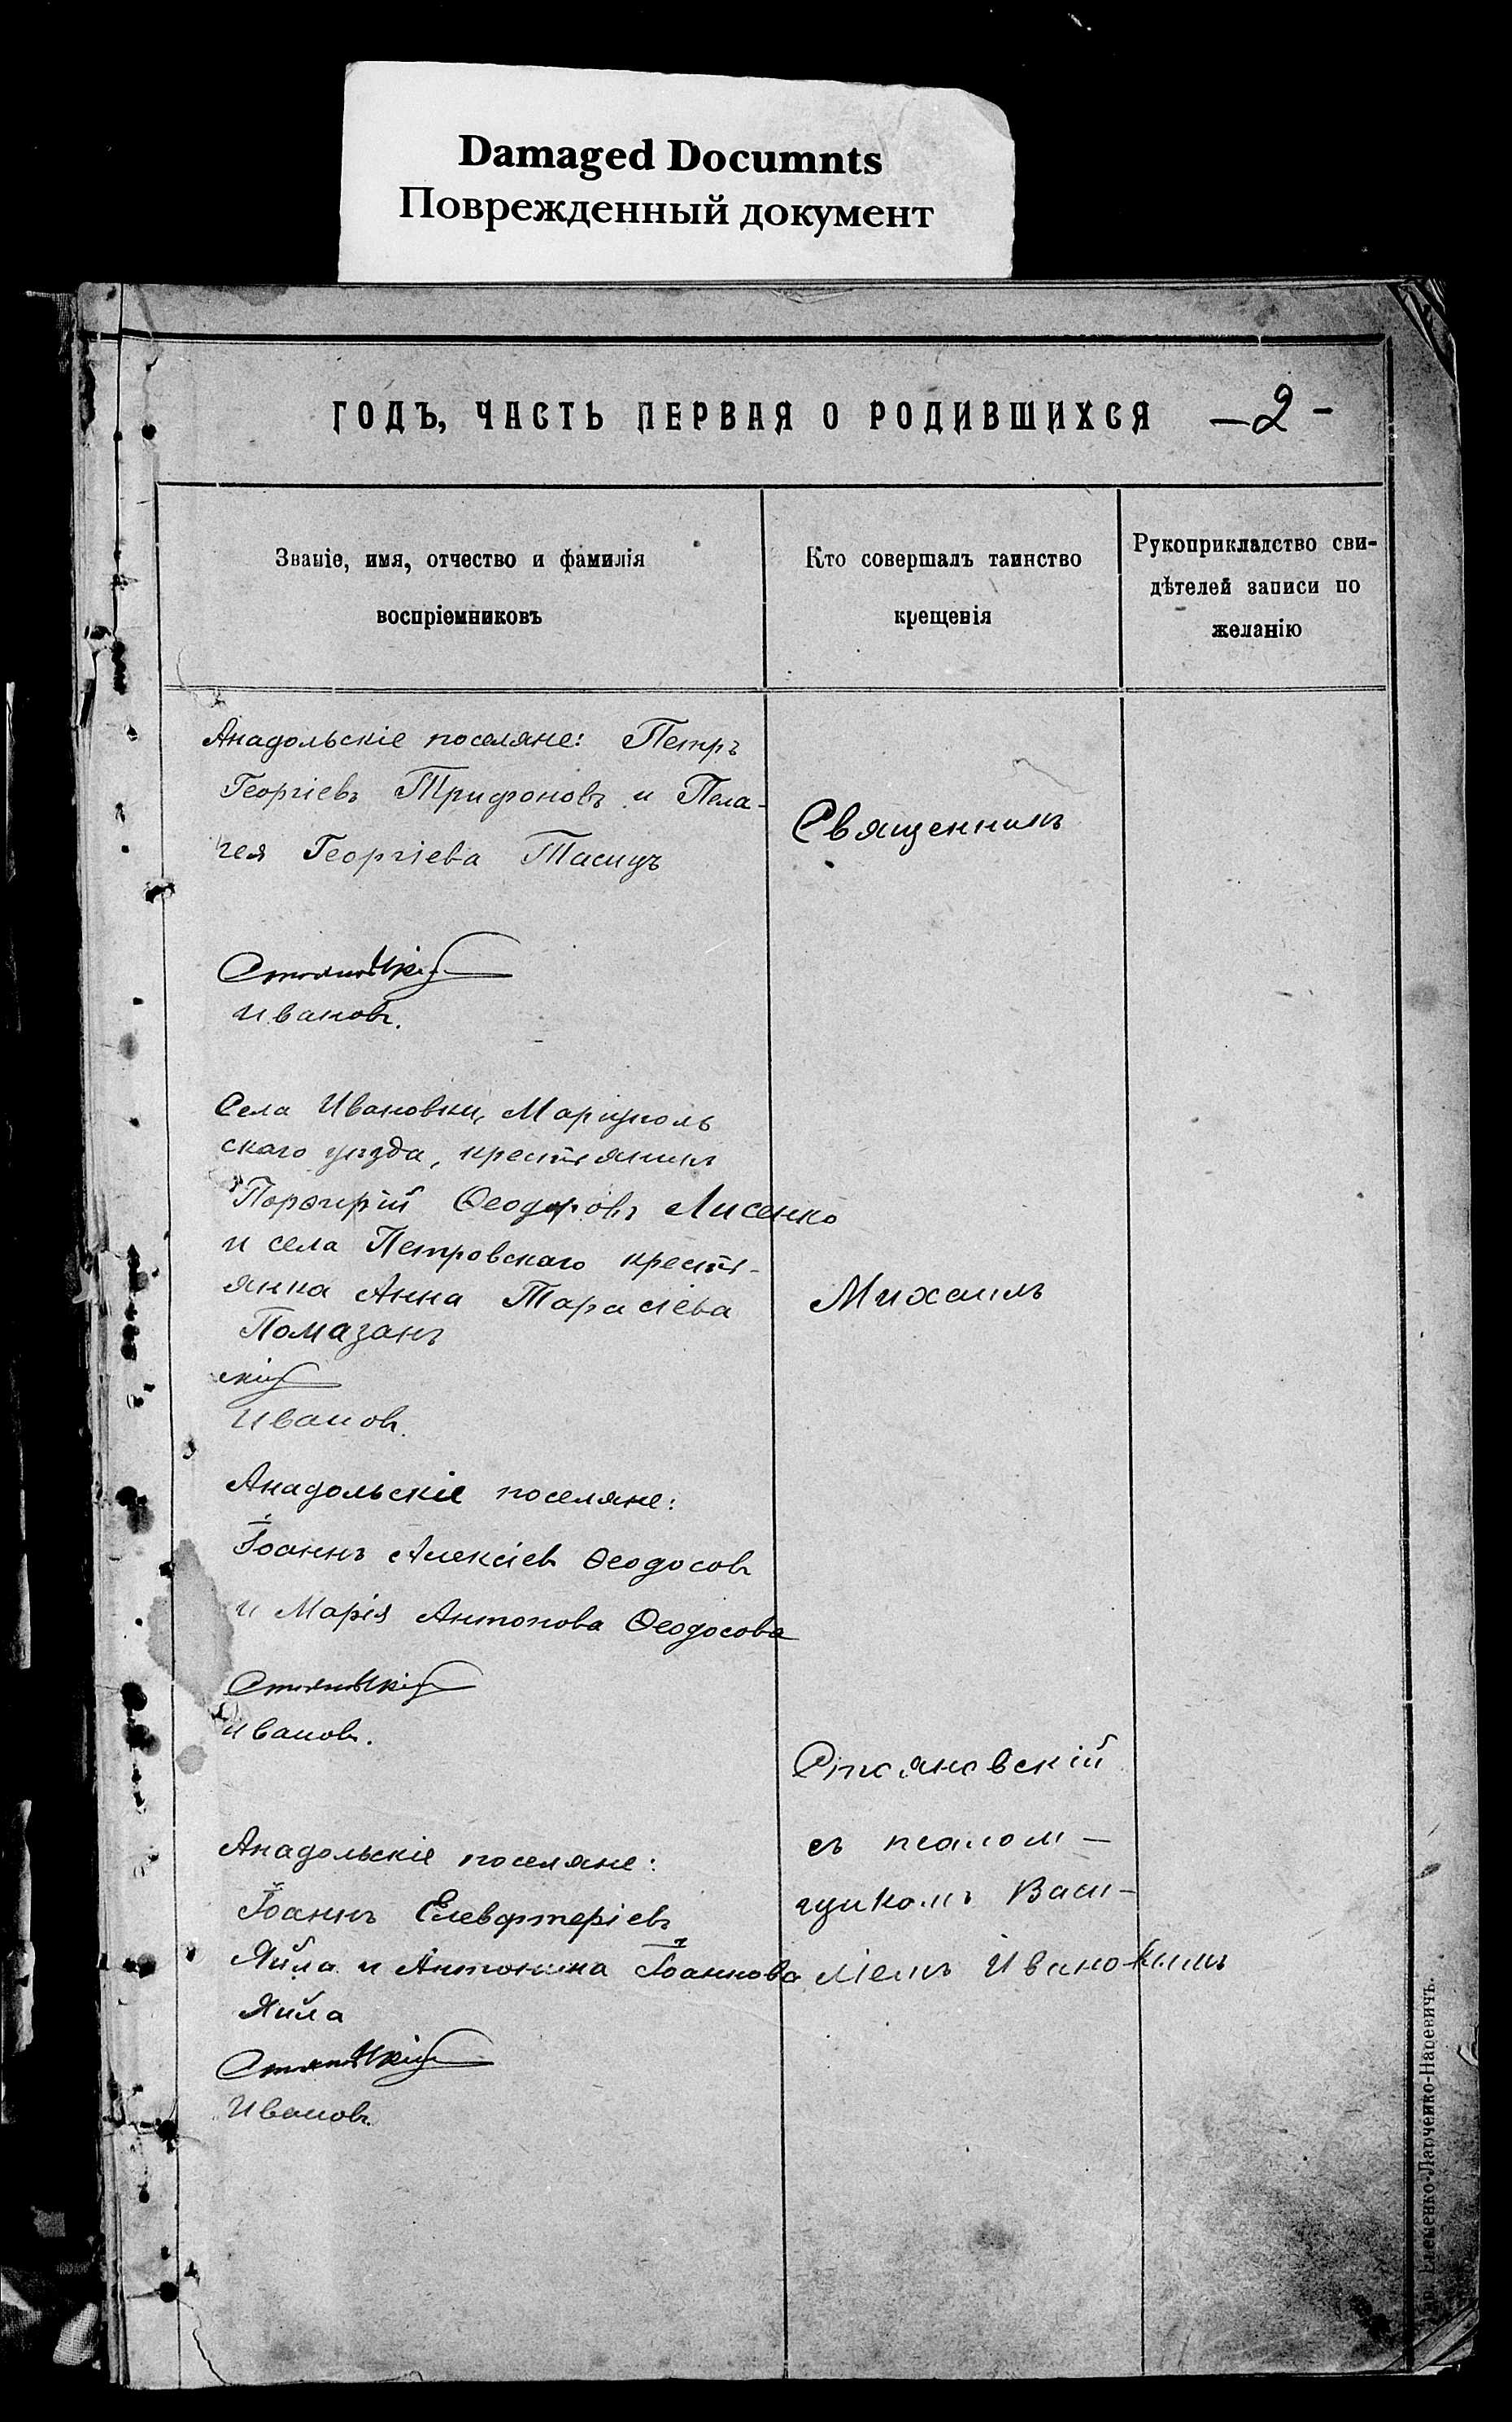 Damaged Documnts
Поврежденный документ
ГОДЪ, ЧАСТЬ ПЕРВАЯ О РОДИВШИХСЯ — 2 -
Званіе, имя, отчество и фамилія
воспріемниковъ
Кто совершалъ таинство
крещенія
Рукоприкладство сви-
дѣтелей записи по
желанію
Анадольскіе поселяне: Петръ
Георгіевъ Трифоновъ и Пела-
гея Георгіева Тасицъ
Ивановъ.
Села Ивановки, Маріуполь
скаго уѣзда, крестьянинъ
Порфирій Ѳеодоровъ Лисенко
и села Петровскаго кресть-
янка Анна Тарасіева
Помазанъ
скій
Ивановъ.
Анадольскіе поселяне:
Іоаннъ Алексіевъ Ѳеодосовъ
и Марія Антонова Ѳеодосова
Ивановъ.
Анадольскіе поселяне:
Іоаннъ Елевфтеріевъ
Яйла и Антонина Іоаннова
Яйла
Ивановъ.
Священникъ
Михаилъ
Стояновскій
съ псалом-
щикомъ Васи-
ліемъ Ивановымъ
Еременко-Ларченко-Наревичъ.